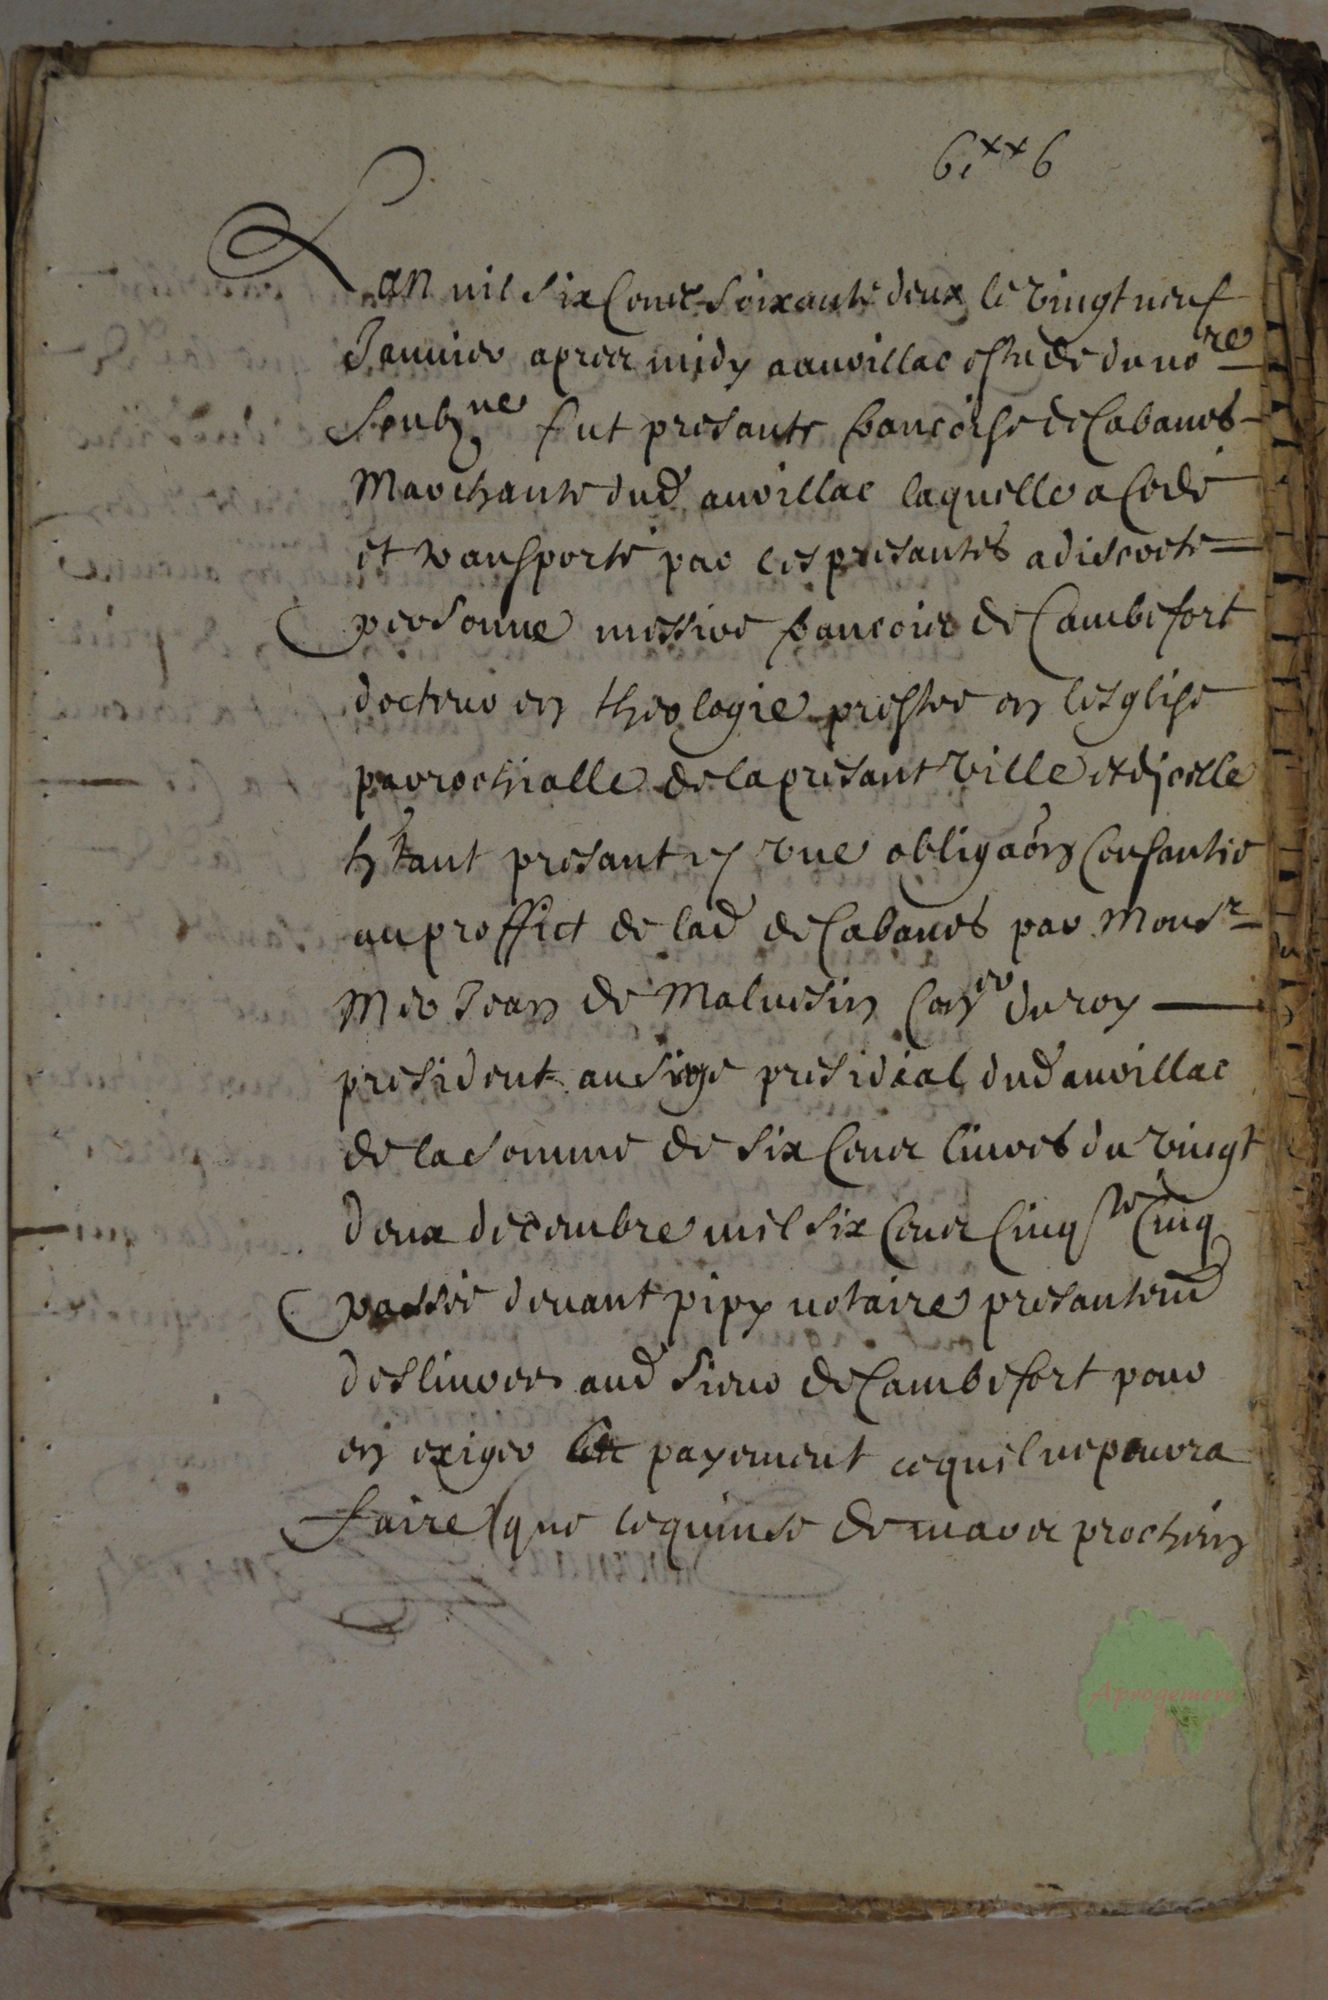 6xx6
Lan mil six cens soixante deux le vingt neuf
Januier apres midy a aurillac estude du nore
soubzne fut presante francoise de Cabanes
Marchante dud aurillac laquelle a cedé
et transporté par ces presantes a discrete
personne messire francois de Cambefort
docteur en theologie prestre en lesglise
parrochialle de la presant ville et dicelle
htant presant vne obligaon consantie
au proffict de lad de Cabanes par Monsr
Me Jean de Maluesin Coner du roy
president au siege presidial dud aurillac
de la somme de six cens liures du vingt
deux decembre mil six cens cinqte cinq
passée deuant pipy notaire presantemt
desliuree aud sieur de Cambefort pour
en exiger payement ce quil ne pourra
faire que le quinse de mars prochein
Aprogemere